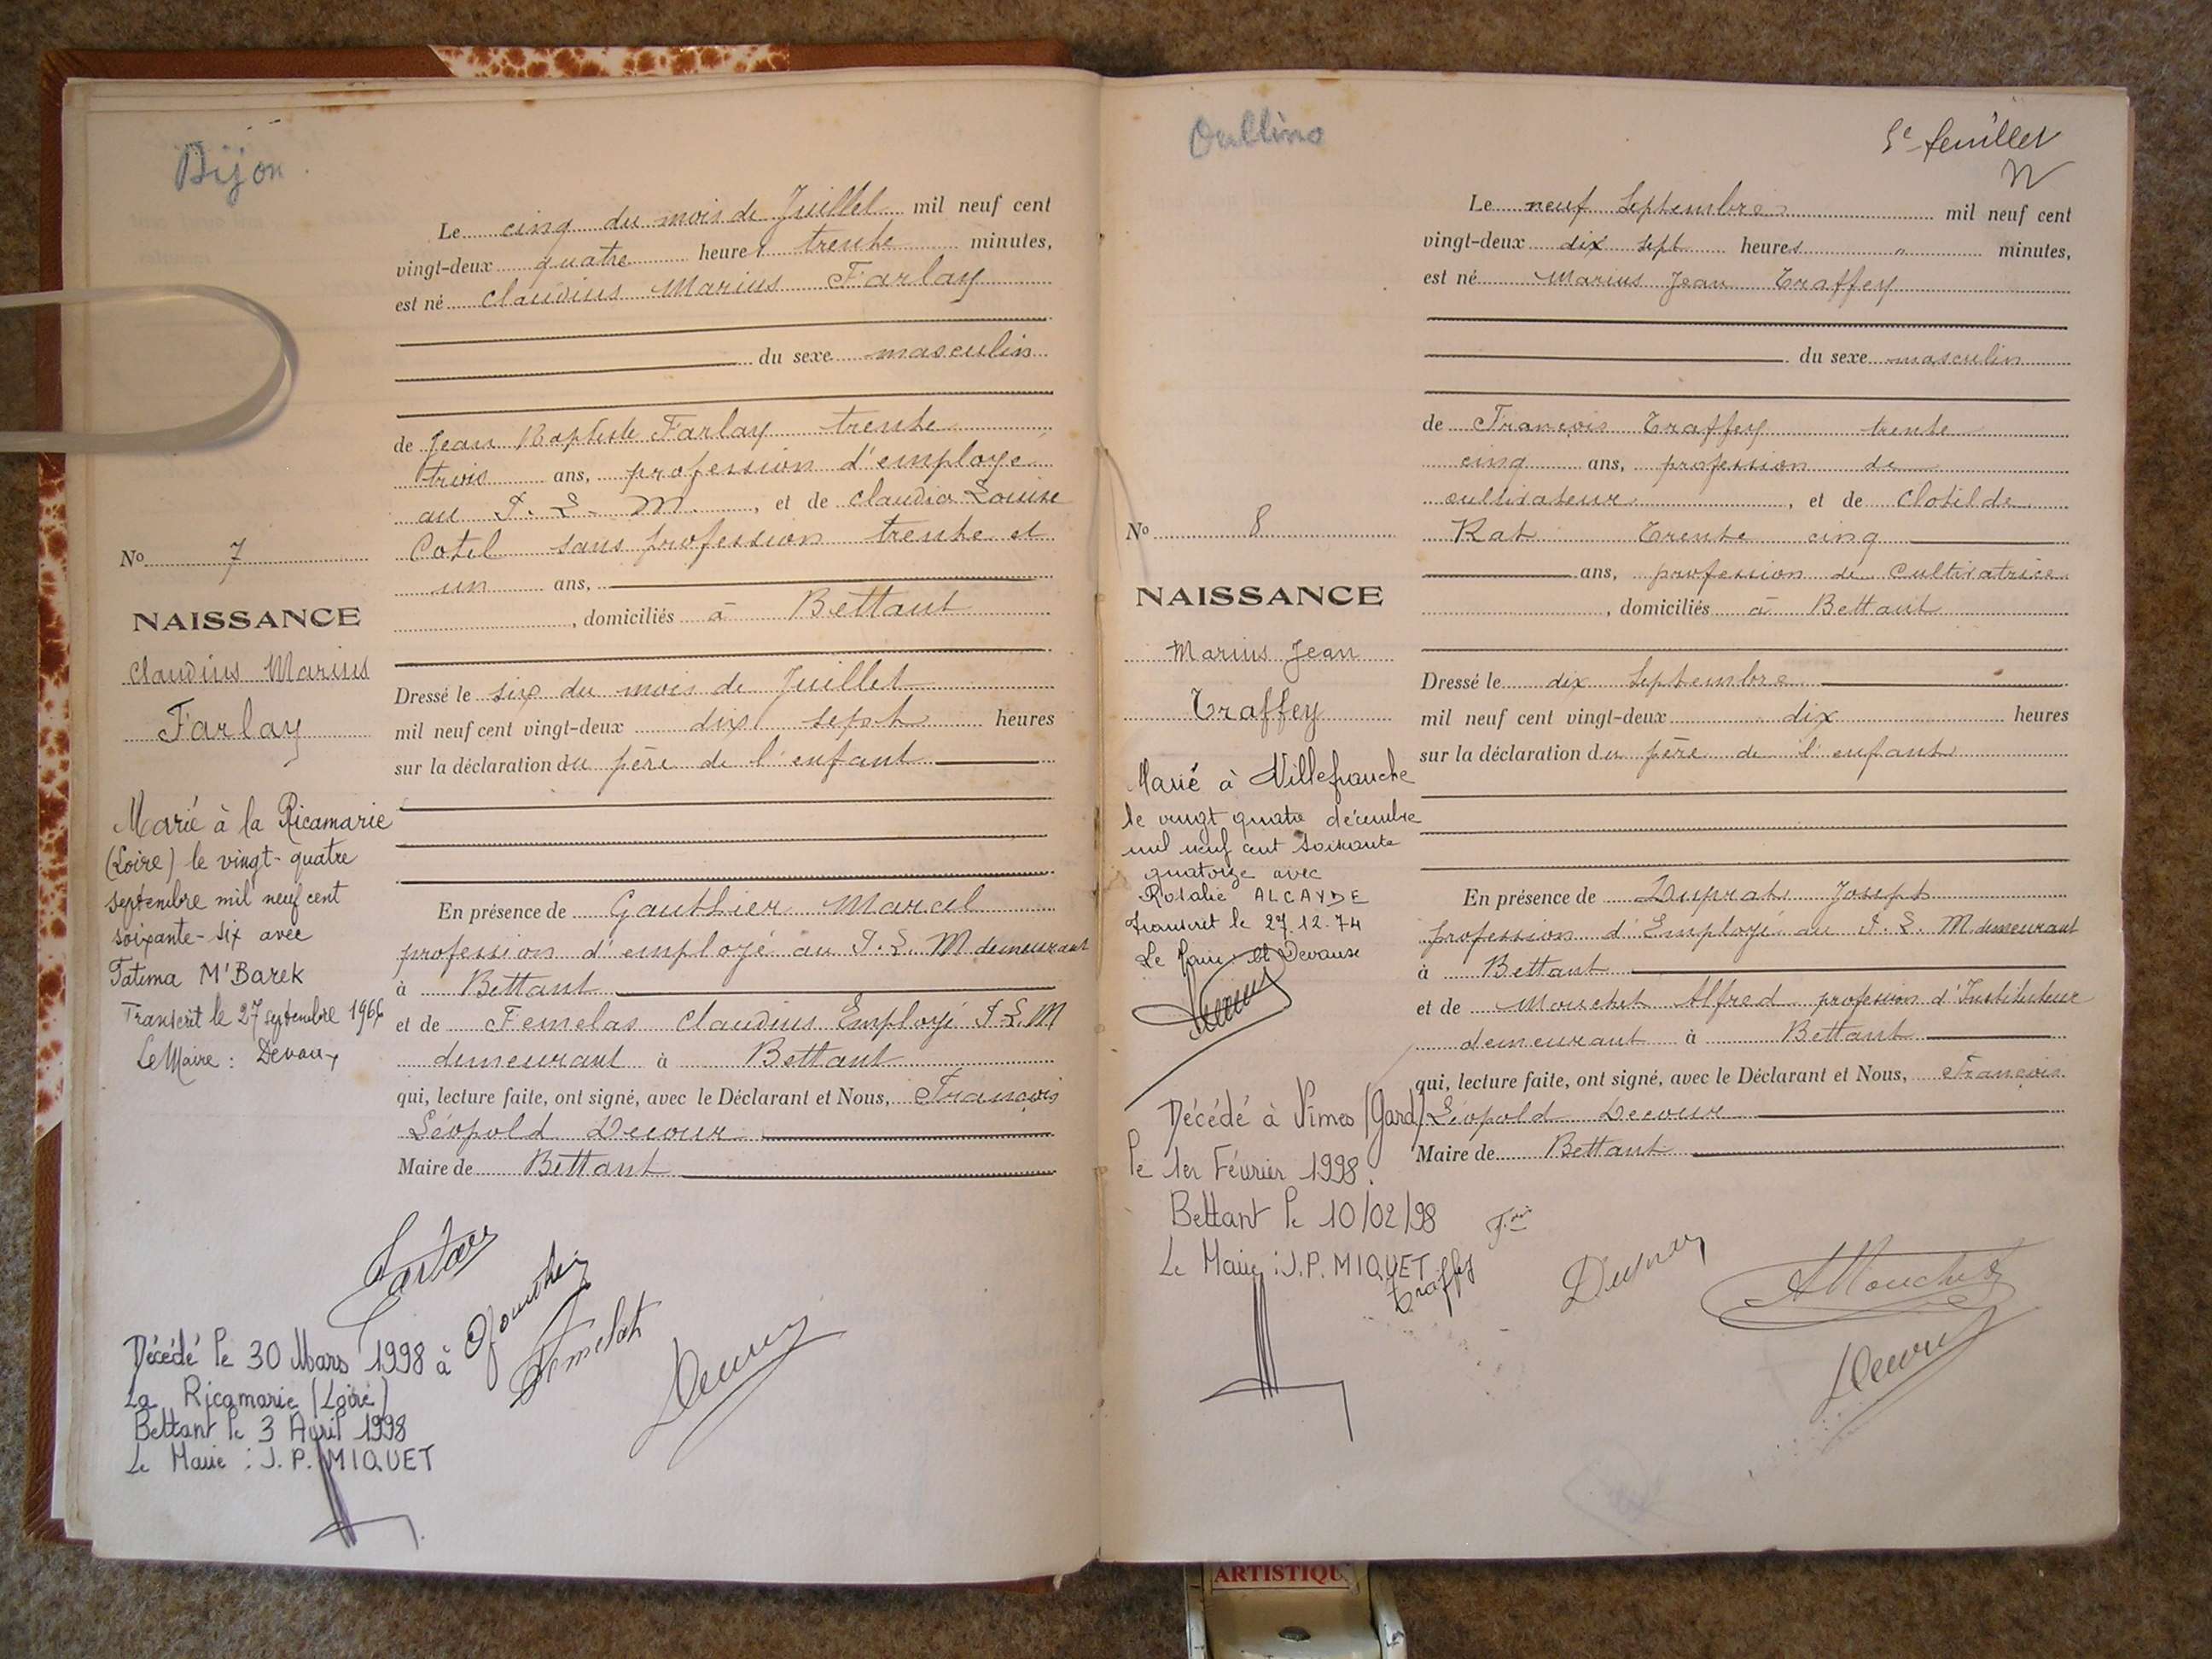 Bijon.
Le cinq du mois de Juillet mil neuf cent
vingt-deux quatre heures trente minutes,
est né Claudius Marius Farlay
du sexe masculin
de Jean Baptiste Farlay trente
trois ans, profession d'employé
au P. L. M. , et de Claudia Louise
Cotel sans profession trente et
un ans,
, domiciliés à Bettant
Dressé le six du mois de Juillet
mil neuf cent vingt-deux dix sept heures
sur la déclaration du père de l'enfant
En présence de Gauthier Marcel
profession d'employé au P. L. M demeurant
à Bettant
et de Femelas Claudius Employé P. L. M
demeurant à Bettant
qui, lecture faite, ont signé, avec le Déclarant et Nous, François
Léopold Decour
Maire de Bettant
No 7
NAISSANCE
Claudius Marius
Farlay
Marié à la Ricamarie
(Loire) le vingt-quatre
septembre mil neuf cent
soixante-six avec
Fatima M'Barek
Transcrit le 27 septembre 1966
Le Maire : Devaux
Farlay
Gauthier
Femelat
Décédé le 30 Mars 1998 à
La Ricamarie (Loire)
Bettant le 3 Avril 1998
Le Maire : J. P. MIQUET
Oullino
5e feuillet
Le neuf Septembre mil neuf cent
vingt-deux dix sept heures " minutes,
est né Marius Jean Traffey
du sexe masculin
de François Traffey trente
cinq ans, profession de
cultivateur , et de Clotilde
Rat Trente cinq
ans, profession de Cultivatrice
, domiciliés à Bettant
Dressé le dix Septembre
mil neuf cent vingt-deux dix heures
sur la déclaration du père de l'enfant
En présence de Duprat Joseph
profession d'Employé au P. L. M. demeurant
à Bettant
et de Mouchet Alfred profession d'Instituteur
demeurant à Bettant
qui, lecture faite, ont signé, avec le Déclarant et Nous, François
Léopold Decour
Maire de Bettant
No 8
NAISSANCE
Marius Jean
Traffey
Marié à Villefranche
le vingt quatre décembre
mil neuf cent soixante
quatorze avec
Rosalie ALCAYDE
Transcrit le 27.12.74
Le Maire
Décédé à Nimes (Gard)
le 1er Février 1998.
Bettant le 10/02/98
Le Maire : J. P. MIQUET
Traffey
Duprat
AMouchet
ARTISTIQU